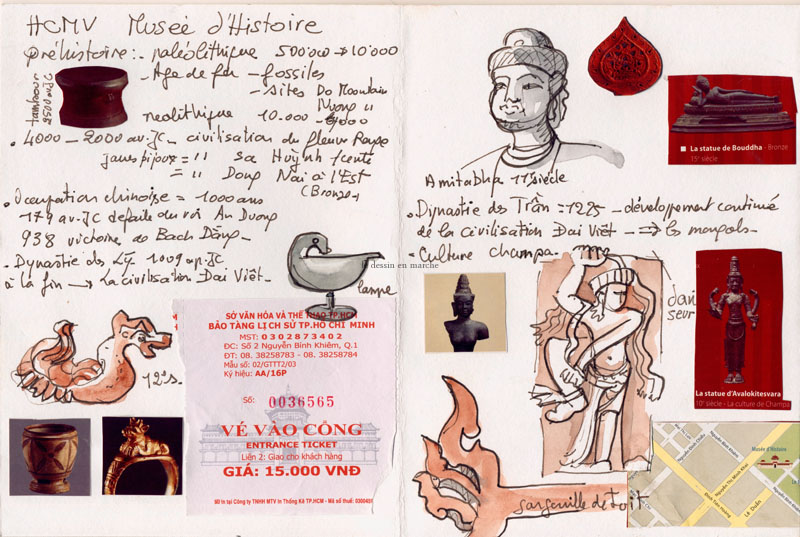 HCMV Museé d'Histoire
préhistoire: paléolithique 500'000 → 10'000
- Age de fer - fossiles
- sites Do Mountain
Nuong "
tampon
néolithique 10.000 - 4000
. 4000 - 2000 av. JC - civilisation du fleuve Rouge
" Sa Huỳnh
= " Dong Nai à l'Est
(Bronze)
. Occupation chinoise = 1000 ans
179 av. JC défaite du roi An Duong
938 victoire de Bach Dằng -
. Dynastie des Lý 1009 ap. JC
à la fin → la civilisation Dai Viêt -
lampe
12e s.
SỞ VĂN HÓA VÀ THỂ THAO TP.HCM
BẢO TÀNG LỊCH SỬ TP.HO CHI MINH
MST: 0302873402
ĐC: Số 2 Nguyễn Bỉnh Khiêm, Q.1
ĐT: 08. 38258783 - 08. 38258784
Mẫu số: 02/GTTT2/03
Ký hiệu: AA/16P
Số: 0036565
VÉ VÀO CỔNG
ENTRANCE TICKET
Liên 2: Giao cho khách hàng
GIÁ: 15.000 VNĐ
In tại Công ty TNHH MTV In Thống Kê TP.HCM - Mã số thuế:
© dessin en marche
La statue de Bouddha - Bronze
15e siècle
Amitabha 11e siècle
. Dynastie des Trần = 1225 - développement continué
de la civilisation Dai Viêt - ⇒ les mongols -
. Culture champa -
dan
seur
La statue d'Avalokitesvara
10e siècle - La culture de Champa
gargouille de toit
Musée d'Histoire
Lê Duẩn